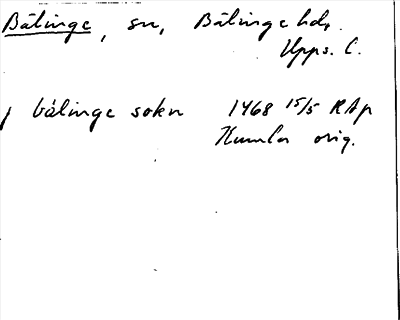 Bälinge, sn, Bälinge hd,
Upps. C.
j bálinge sokn 1468 15/5 RAp
Kumla orig.